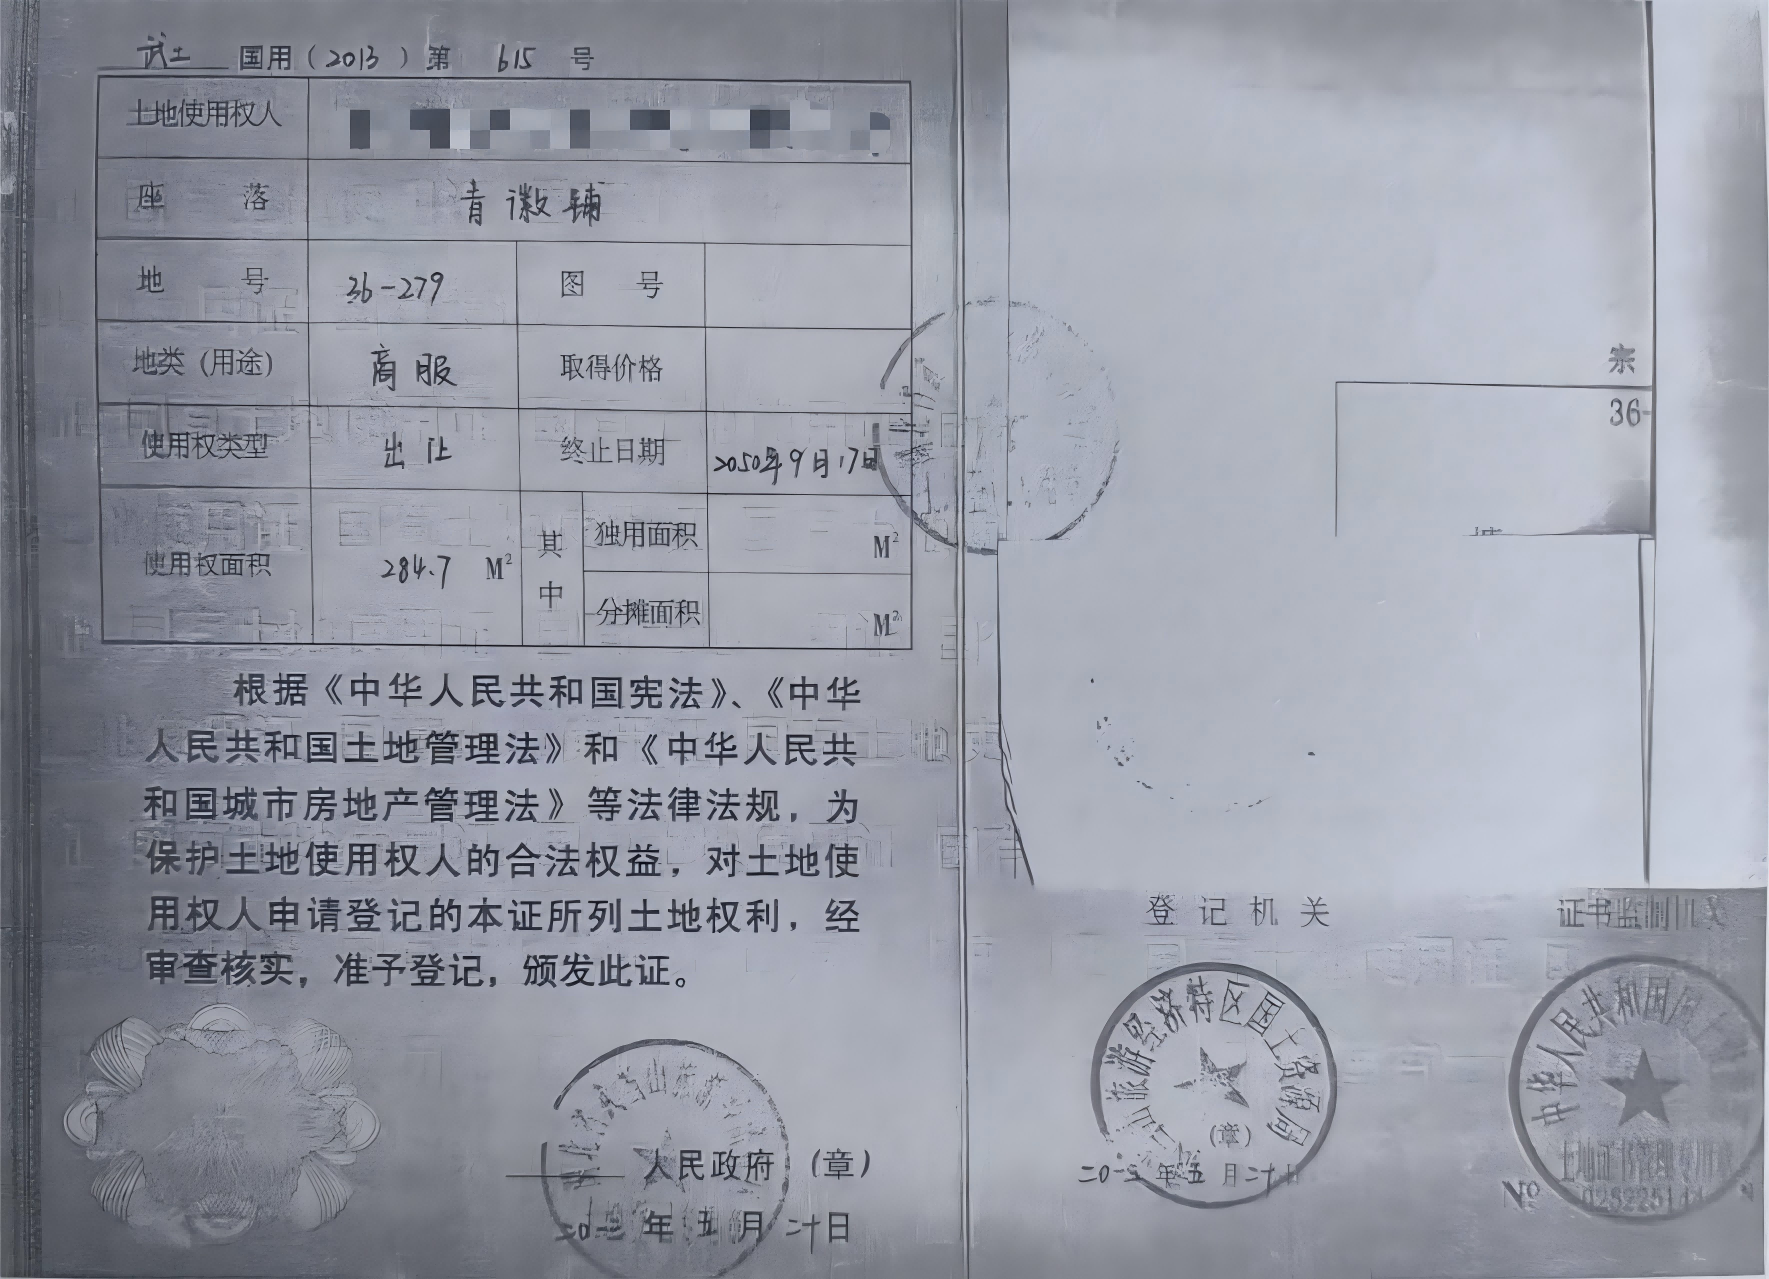 武土 国用（2013）第 615 号
土地使用权人
座 落 青徽铺
地 号 36-279 图 号
地类（用途） 商服 取得价格
使用权类型 出让 终止日期 2050年9月17日
使用权面积 284.7 M² 其中 独用面积 M²
分摊面积 M²
根据《中华人民共和国宪法》、《中华
人民共和国土地管理法》和《中华人民共
和国城市房地产管理法》等法律法规，为
保护土地使用权人的合法权益，对土地使
用权人申请登记的本证所列土地权利，经
审查核实，准予登记，颁发此证。
人民政府 （章）
年五月二十日
宗
36-
登记机关
旅游经济特区国土资源局
（章）
年五月二十日
证书监制机关
中华人民共和国国
土地证书管理专用章
Nº